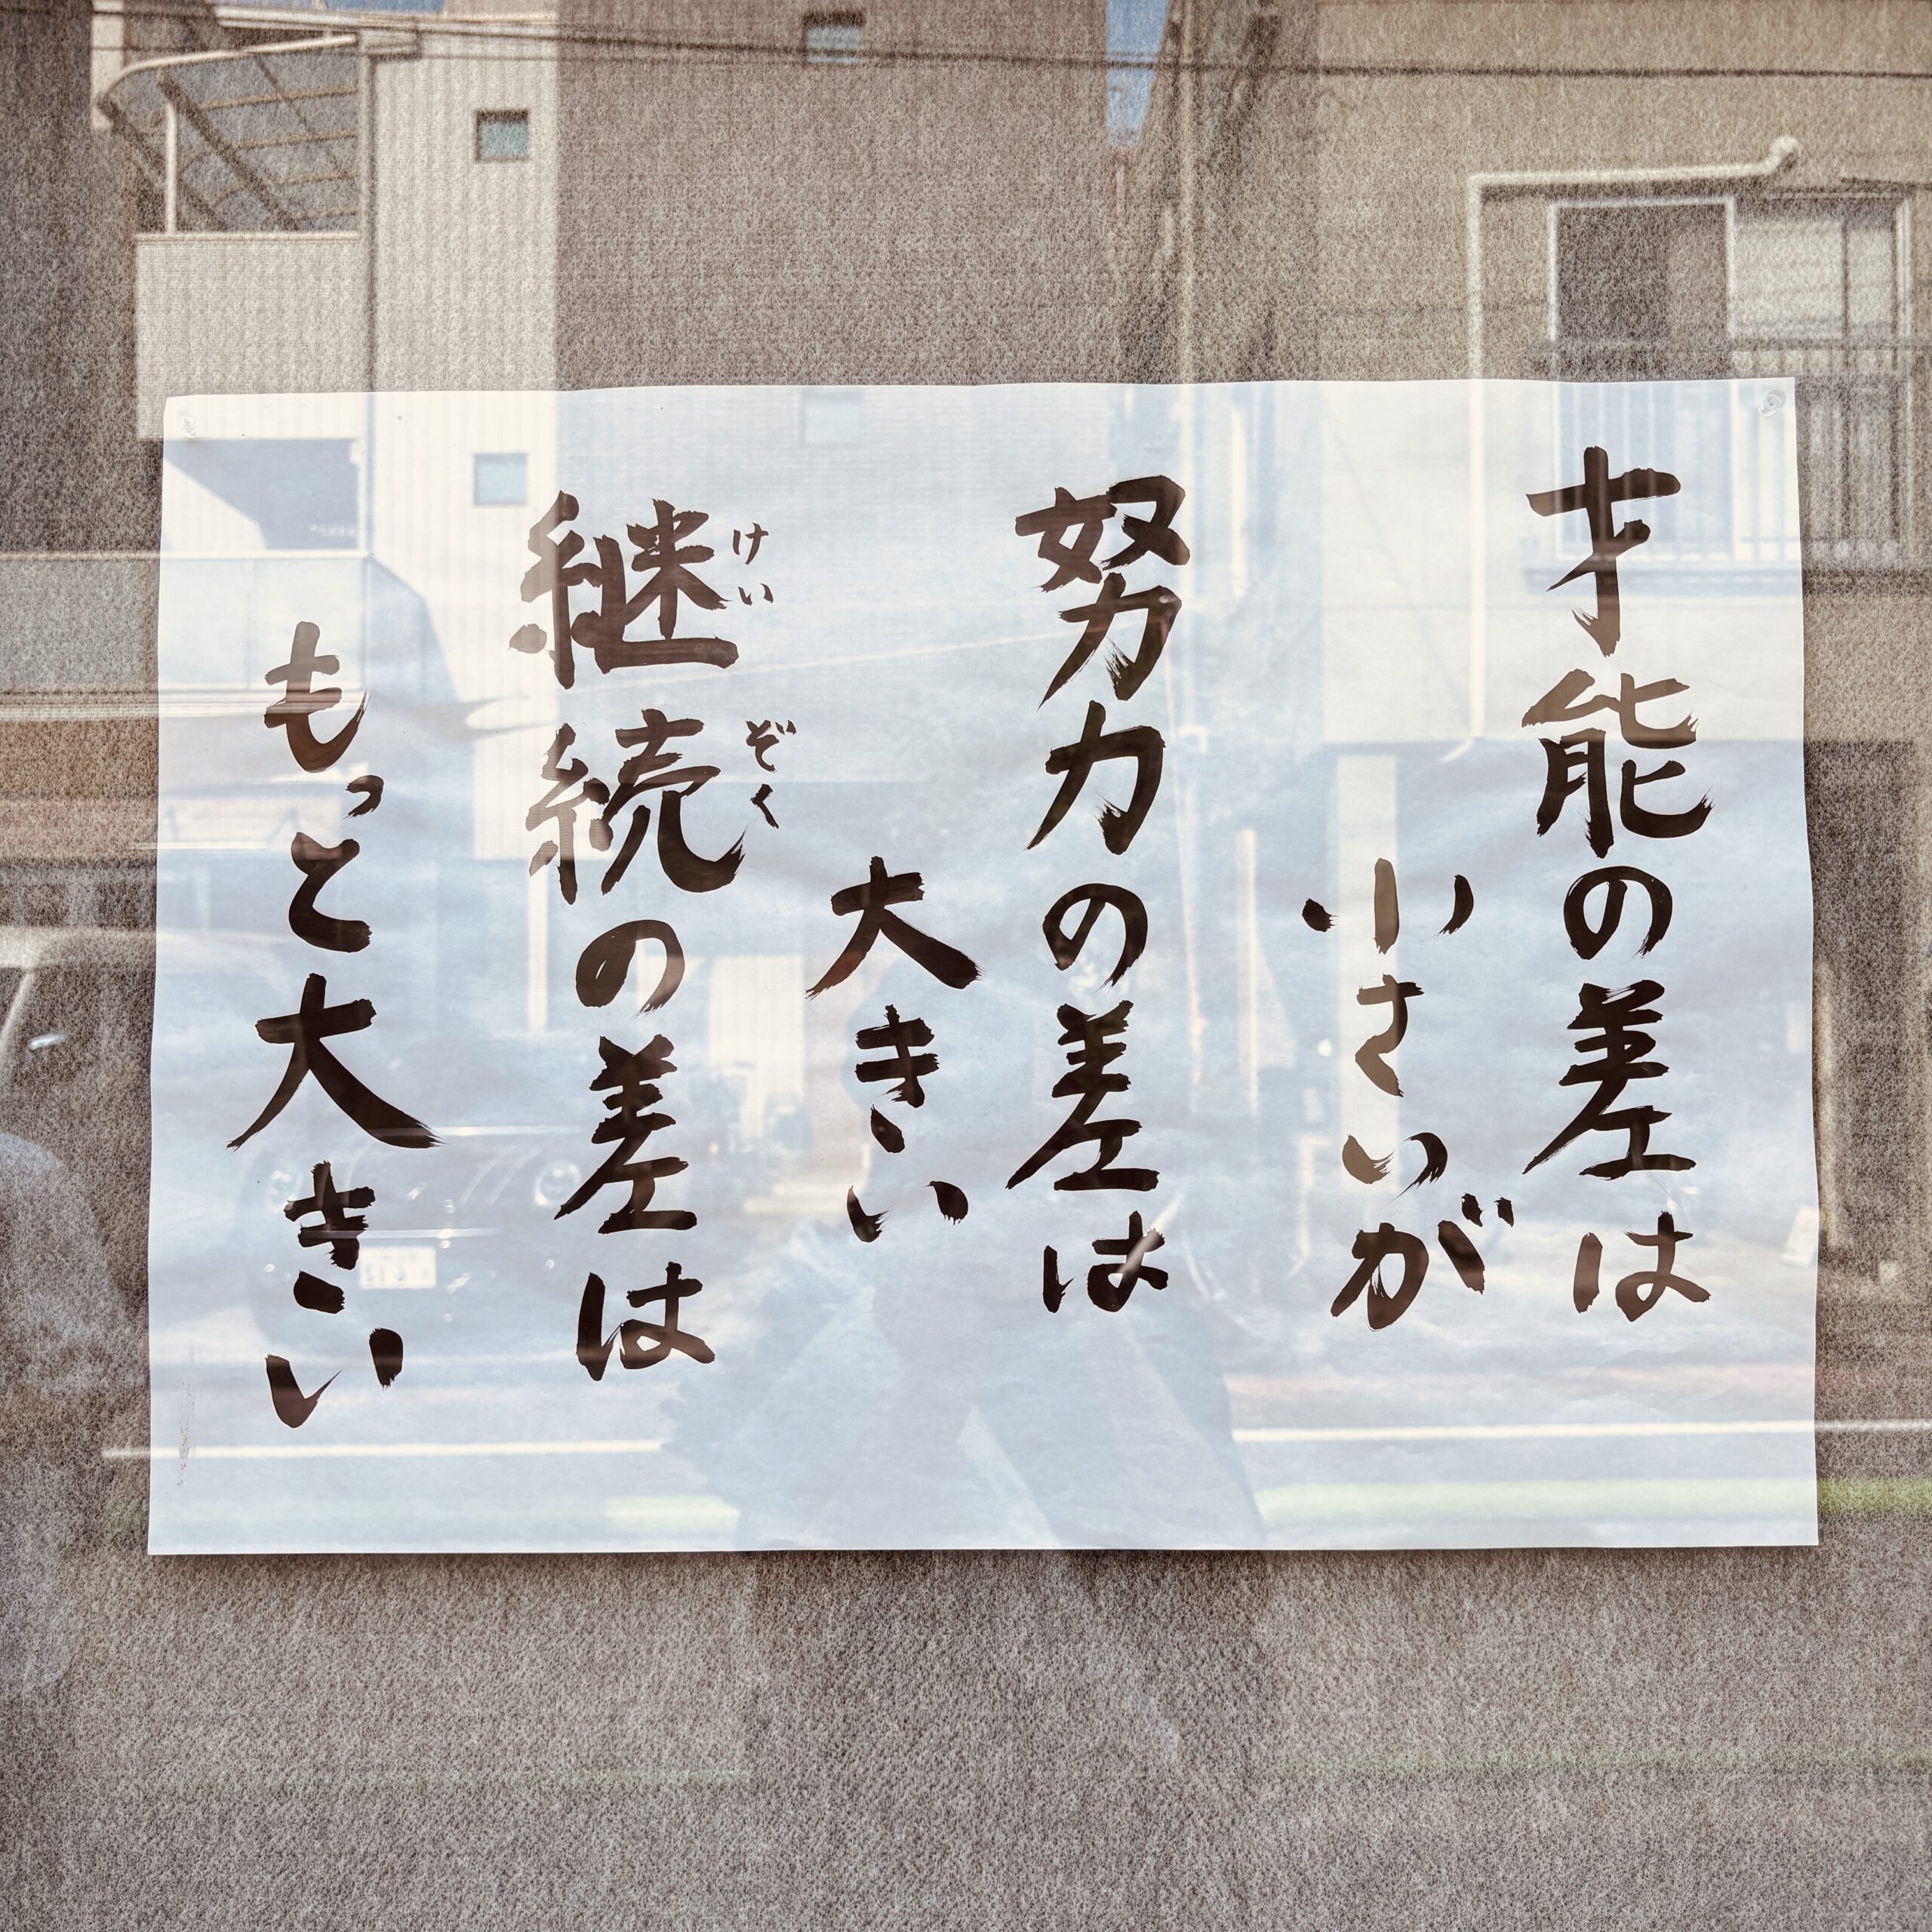 才能の差は
小さいが
努力の差は
大きい
継続の差は
けいぞく
もっと大きい